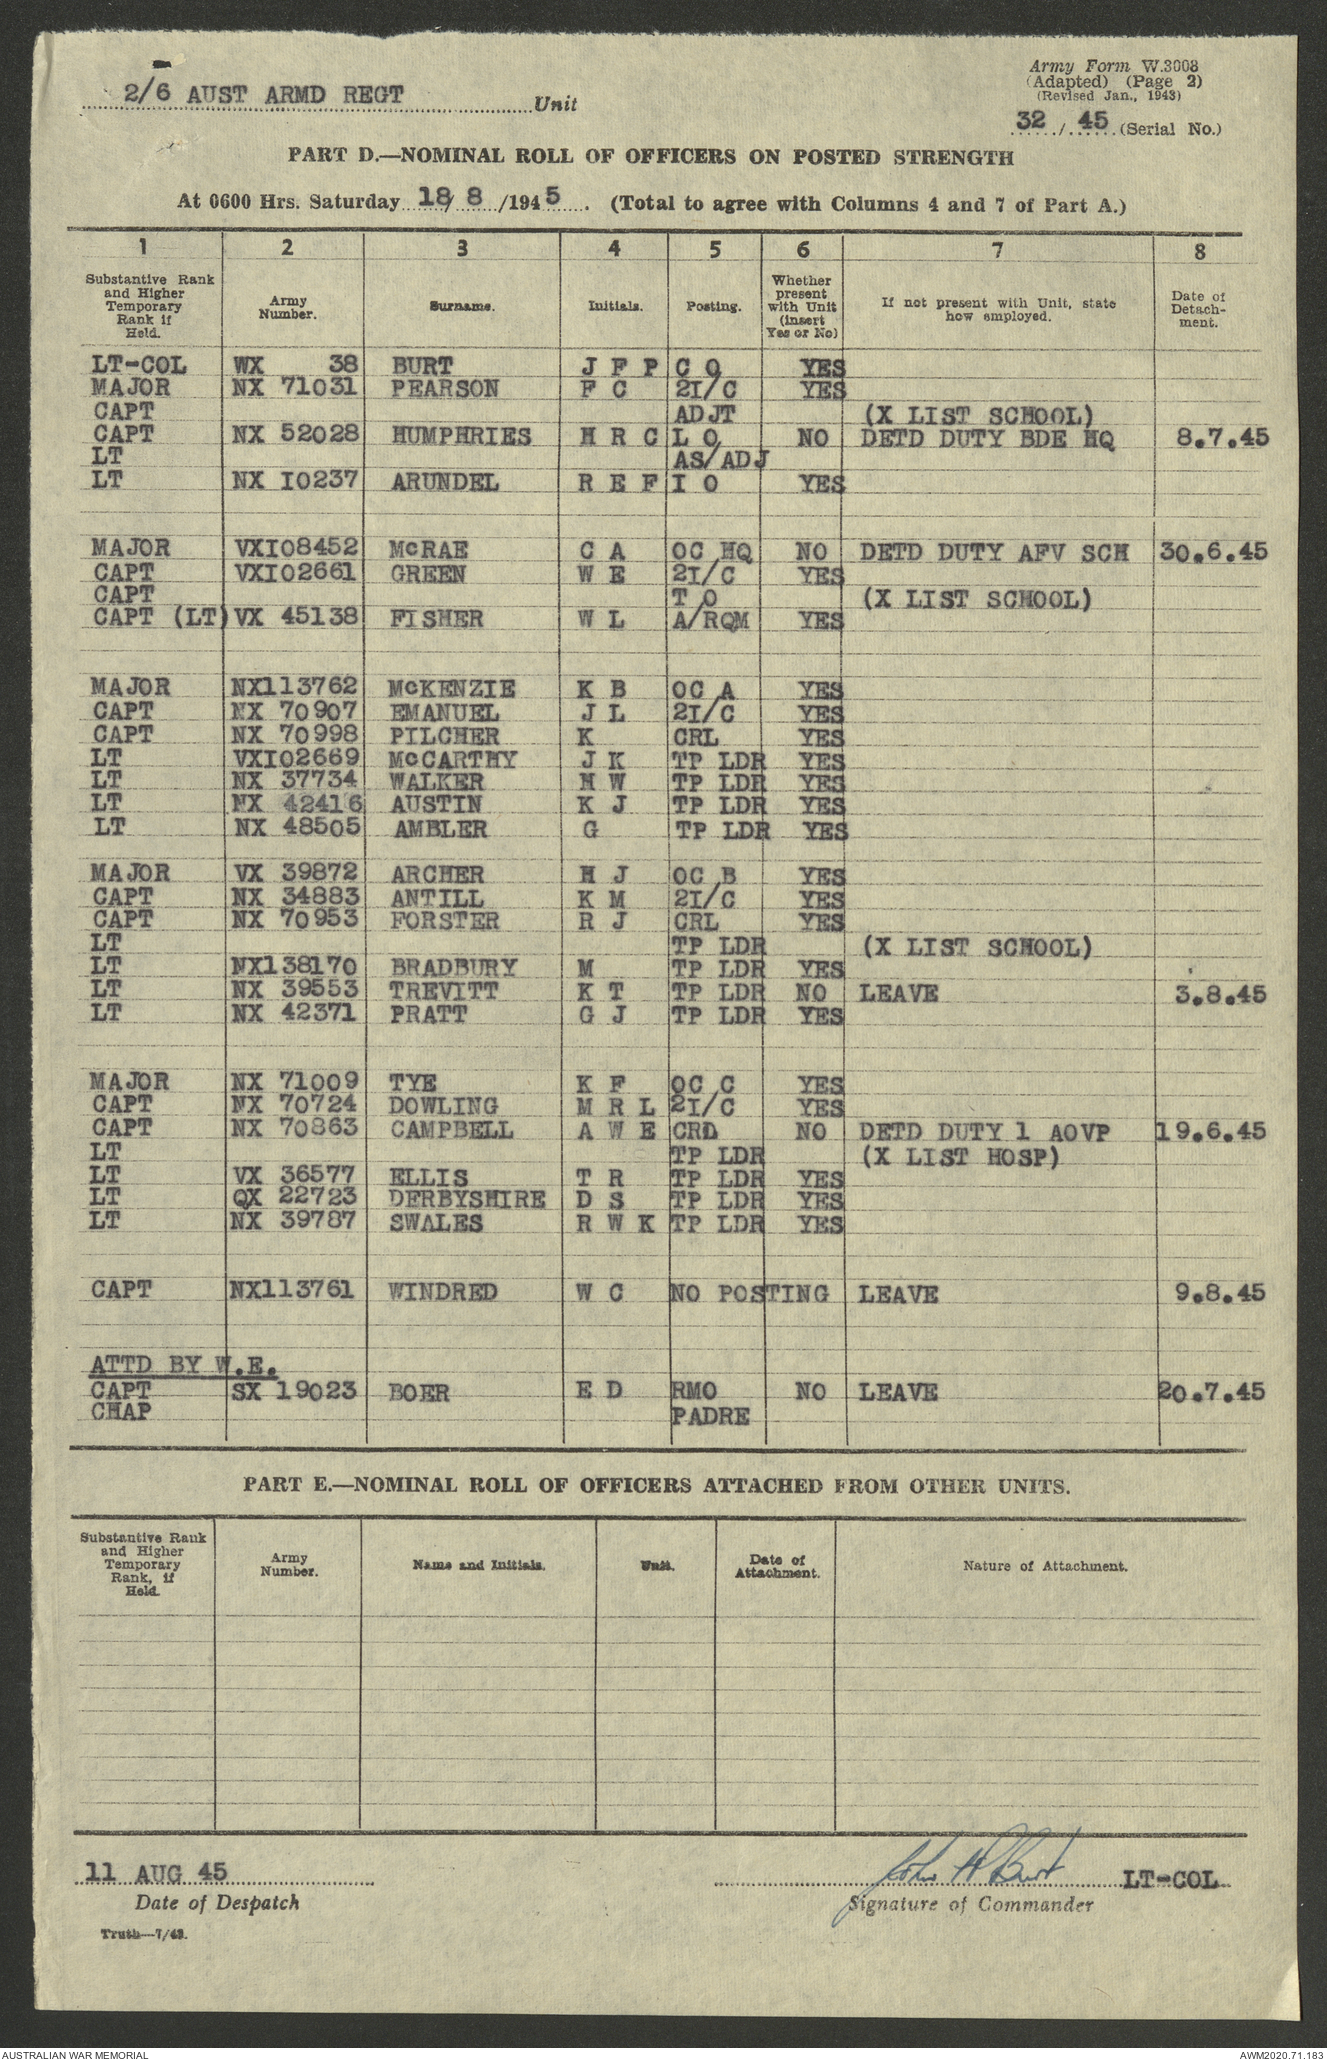 2/6 AUST ARMD REGT Unit
Army Form W.3008
(Adapted) (Page 2)
(Revised Jan., 1943)
32 / 45 (Serial No.)
PART D.—NOMINAL ROLL OF OFFICERS ON POSTED STRENGTH
At 0600 Hrs. Saturday 18/ 8 /1945 . (Total to agree with Columns 4 and 7 of Part A.)
1 2 3 4 5 6 7 8
Substantive Rank and Higher Temporary Rank if Held. Army Number. Surname. Initials. Posting. Whether present with Unit (insert Yes or No) If not present with Unit, state how employed. Date of Detach-ment.
LT-COL WX 38 BURT J F P C O YES
MAJOR NX 71031 PEARSON F C 2I/C YES
CAPT ADJT (X LIST SCHOOL)
CAPT NX 52028 HUMPHRIES H R C L O NO DETD DUTY BDE HQ 8.7.45
LT AS/ADJ
LT NX I0237 ARUNDEL R E F I O YES
MAJOR VXI08452 McRAE C A OC HQ NO DETD DUTY AFV SCH 30.6.45
CAPT VXI02661 GREEN W E 2I/C YES
CAPT T O (X LIST SCHOOL)
CAPT (LT) VX 45138 FISHER W L A/RQM YES
MAJOR NX113762 McKENZIE K B OC A YES
CAPT NX 70907 EMANUEL J L 2I/C YES
CAPT NX 70998 PILCHER K CRL YES
LT VXI02669 McCARTHY J K TP LDR YES
LT NX 37734 WALKER H W TP LDR YES
LT NX 42416 AUSTIN K J TP LDR YES
LT NX 48505 AMBLER G TP LDR YES
MAJOR VX 39872 ARCHER H J OC B YES
CAPT NX 34883 ANTILL K M 2I/C YES
CAPT NX 70953 FORSTER R J CRL YES
LT TP LDR (X LIST SCHOOL)
LT NX138170 BRADBURY M TP LDR YES
LT NX 39553 TREVITT K T TP LDR NO LEAVE 3.8.45
LT NX 42371 PRATT G J TP LDR YES
MAJOR NX 71009 TYE K F OC C YES
CAPT NX 70724 DOWLING M R L 2I/C YES
CAPT NX 70863 CAMPBELL A W E CRL NO DETD DUTY 1 AOVP 19.6.45
LT TP LDR (X LIST HOSP)
LT VX 36577 ELLIS T R TP LDR YES
LT QX 22723 DERBYSHIRE D S TP LDR YES
LT NX 39787 SWALES R W K TP LDR YES
CAPT NX113761 WINDRED W C NO POSTING LEAVE 9.8.45
ATTD BY W.E.
CAPT SX 19023 BOER E D RMO NO LEAVE 20.7.45
CHAP PADRE
PART E.—NOMINAL ROLL OF OFFICERS ATTACHED FROM OTHER UNITS.
Substantive Rank and Higher Temporary Rank, if Held. Army Number. Name and Initials. Unit. Date of Attachment. Nature of Attachment.
11 AUG 45 LT-COL
Date of Despatch Signature of Commander
Truth—7/43.
AUSTRALIAN WAR MEMORIAL AWM2020.71.183